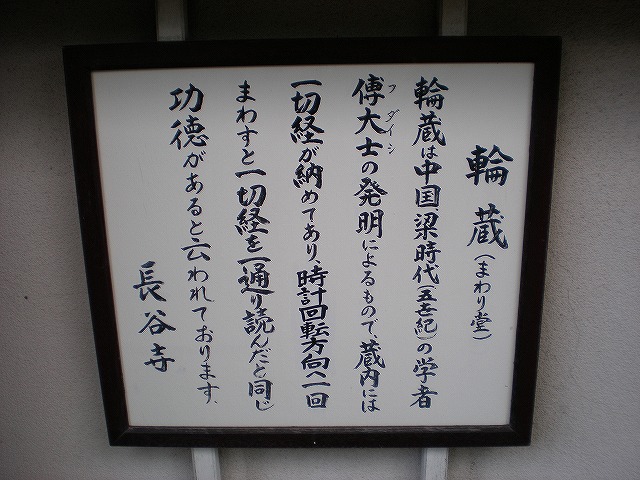 輪蔵(まわり堂)
輪蔵は中国梁時代(五世紀)の学者
傅大士の発明によるもので、蔵内には
フダイシ
一切経が納めてあり、時計回転方向へ一回
まわすと一切経を一通り読んだと同じ
功徳があると云われております。
長谷寺